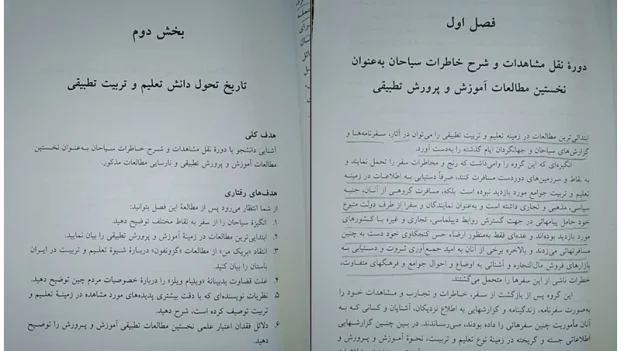 فصل اول
دورهٔ نقل مشاهدات و شرح خاطرات سیاحان به‌عنوان
نخستین مطالعات آموزش و پرورش تطبیقی
ابتدائی‌ترین مطالعات در زمینه تعلیم و تربیت تطبیقی را می‌توان در آثار، سفرنامه‌ها و
گزارش‌های سیاحان و جهانگردان ایام گذشته را به‌دست آورد.
انگیزه‌ای که این گروه را وامی‌داشت که رنج و مخاطرات سفر را تحمل نمایند و
به نقاط و سرزمین‌های دوردست مسافرت کنند، صرفاً دستیابی به اطلاعات در زمینه
تعلیم و تربیت جوامع مورد بازدید نبوده است. بلکه، مسافرت گروهی از آنان، جنبه
سیاسی، مذهبی و تجاری داشته است و به‌عنوان نمایندگان و سفرا از طرف دولت متبوع
خود حامل پیامهائی در جهت گسترش روابط دیپلماسی، تجاری و غیره با کشورهای
مورد بازدید بوده‌اند و عده‌ای فقط به‌منظور ارضاء حس کنجکاوی خود دست به چنین
مسافرتهائی می‌زدند و بالاخره برخی از آنان به امید جمع‌آوری ثروت و دستیابی به
بازارهای فروش مال‌التجاره و آشنائی به اوضاع و احوال جوامع و فرهنگهای متفاوت،
رنجهای ناشی از این سفرها را متحمل می‌گشتند.
این گروه پس از بازگشت از سفر، خاطرات و تجارب و مشاهدات خود را
به‌صورت سفرنامه، زندگینامه و گزارشهایی به اطلاع نزدیکان، آشنایان و کسانی که به
آنان مأموریت چنین سفرهائی را داده بودند، می‌رساندند. در بین چنین گزارشهایی
اطلاعاتی جسته و گریخته در زمینه نوع تعلیم و تربیت، نحوهٔ آموزش و پرورش و
بخش دوم
تاریخ تحول دانش تعلیم و تربیت تطبیقی
هدف کلی
آشنایی دانشجو با دورهٔ نقل مشاهدات و شرح خاطرات سیاحان به‌عنوان نخستین
مطالعات آموزش و پرورش تطبیقی و نارسایی مطالعات مذکور.
هدف‌های رفتاری
از شما انتظار می‌رود پس از مطالعهٔ این فصل بتوانید:
۱. انگیزهٔ سیاحان را از سفر به نقاط مختلف توضیح دهید.
۲. ابتدایی‌ترین مطالعات در زمینهٔ آموزش و پرورش تطبیقی را بیان نمایید.
۳. انتقاد «بریک من» از مطالعات «گزنفون» دربارهٔ شیوهٔ تعلیم و تربیت در ایران
باستان را بیان کنید.
۴. علت قضاوت بدبینانهٔ «ویلیام ویلز» را دربارهٔ خصوصیات مردم چین توضیح دهید.
۵. نظریات نویسنده‌ای که با دقت بیشتری پدیده‌های مورد مشاهده در زمینهٔ تعلیم و
تربیت توصیف کرده است، شرح دهید.
۶. دلائل فقدان اعتبار علمی نخستین مطالعات تطبیقی آموزش و پرورش را توضیح
دهید.